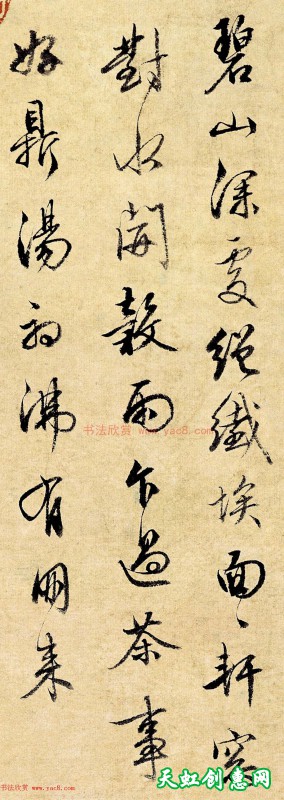 碧山深處絕纖埃面々軒窓
對水開穀雨乍過茶事
好鼎湯初沸有朋來
书法欣赏 www.yac8.com
书法欣赏 www.yac8.com
天虹创意网